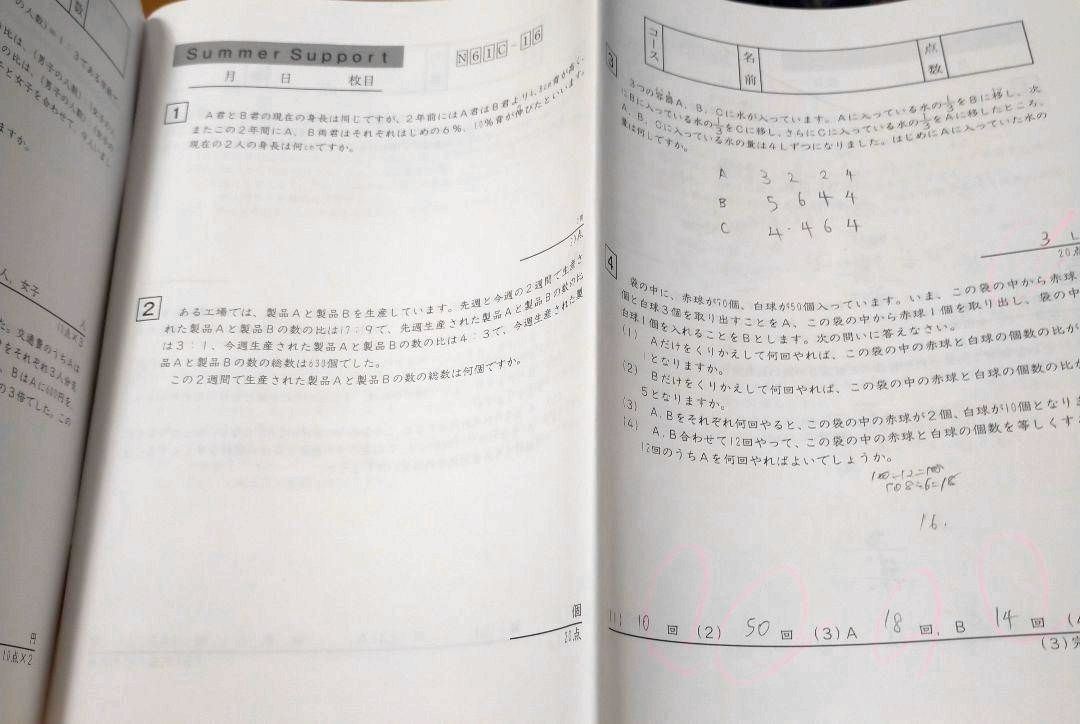 数
の人数)＝1：3である等し
の比は、(男子の人数)
子と女子を合わせて、
ますか。
人、女子
人
11点×5
た。交通費のうちAは
をそれぞれ3人分
BはAに600円を
の3倍でした。この
円
10点×2
Summer Support
N61C-16
月 日 枚目
1
A君とB君の現在の身長は同じですが、2年前にはA君はB君より
またこの2年間にA、B両君はそれぞれはじめの6%、10%背が伸びたといいます。
現在の2人の身長は何cmですか。
2
ある工場では、製品Aと製品Bを生産しています。先週と今週の2週間で生産さ
れた製品Aと製品Bの数の比は17：9で、先週生産された製品Aと製品Bの数の比
は3：1、今週生産された製品Aと製品Bの数の比は4：3で、今週生産された製
品Aと製品Bの数の総数は630個でした。
この2週間で生産された製品Aと製品Bの数の総数は何個ですか。
個
20点
コース
名前
点数
3
3つの容器A、B、Cに水が入っています。Aに入っている水の1/3をBに移し、次
にBに入っている水の1/3をCに移し、さらにCに入っている水の1/3をAに移したところ、
A、B、Cに入っている水の量は4Lずつになりました。はじめにAに入っていた水の
量は何Lですか。
A 3 2 2 4
B 5 6 4 4
C 4 4 6 4
3 L
20点
4
袋の中に、赤球が70個、白球が50個入っています。いま、この袋の中から赤球
個と白球3個を取り出すことをA、この袋の中から赤球1個を取り出し、袋の中
白球1個を入れることをBとします。次の問いに答えなさい。
(1) Aだけをくりかえして何回やれば、この袋の中の赤球と白球の個数の比が
1となりますか。
(2) Bだけをくりかえして何回やれば、この袋の中の赤球と白球の個数の比が
5となりますか。
(3) A、Bをそれぞれ何回やると、この袋の中の赤球が2個、白球が10個となりま
(4) A、B合わせて12回やって、この袋の中の赤球と白球の個数を等しくす
12回のうちAを何回やればよいでしょうか。
16.
(1) 10 回 (2) 50 回 (3)A 18 回、B 14 回
(3)完